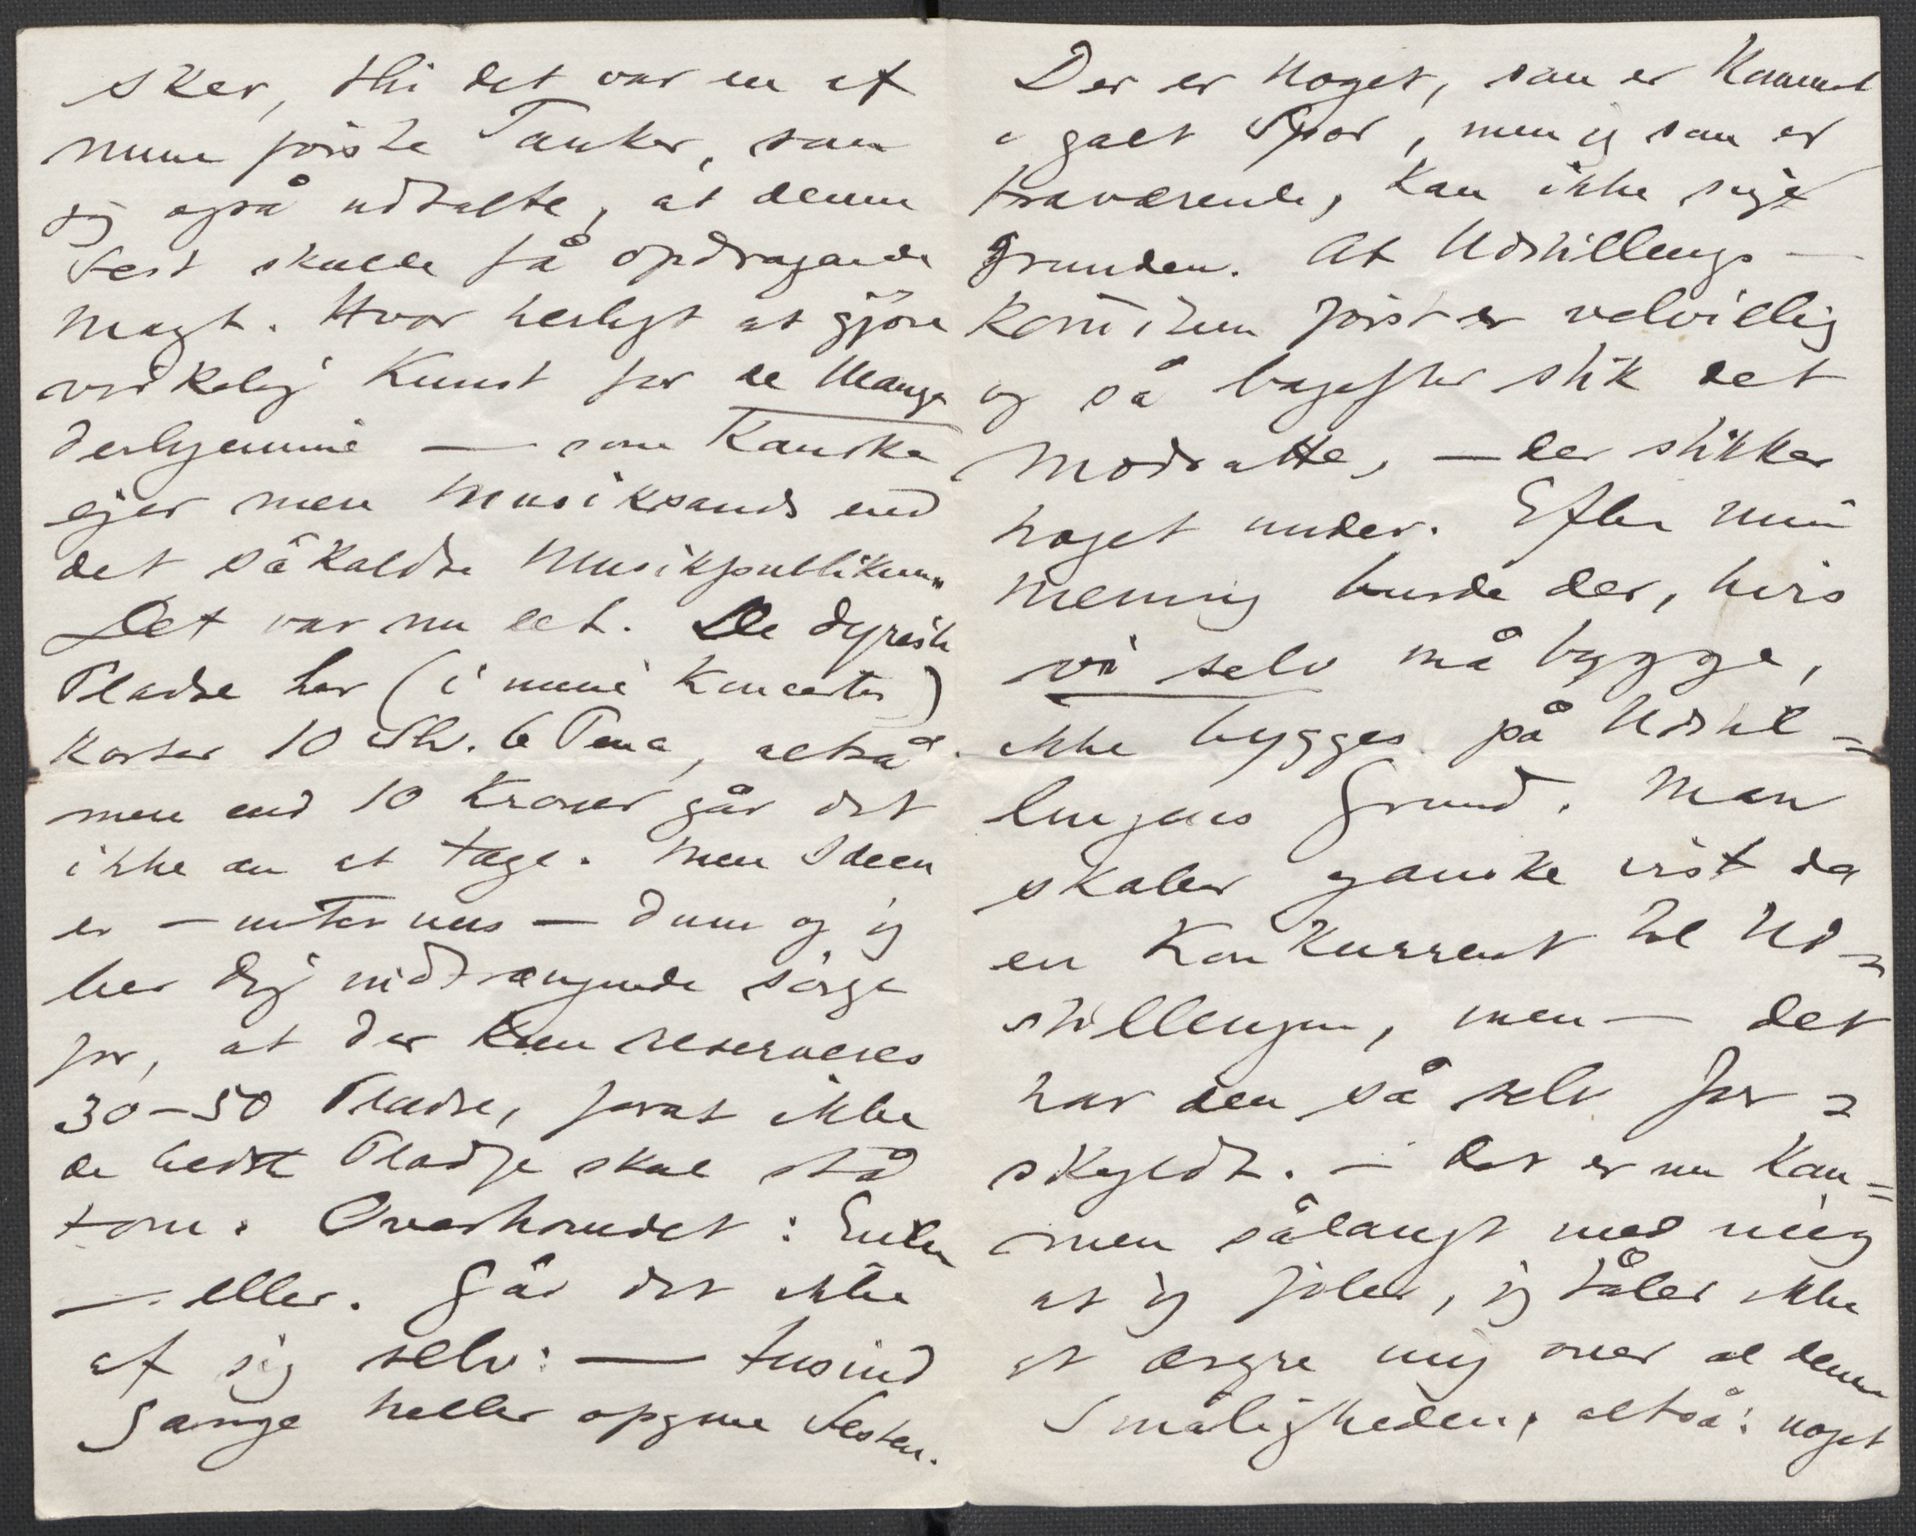 sker, thi det var en af
mine første Tanker, som
jeg også udtalte, at denne
Fest skulde få opdragende
Magt. Hvor herligt at gjøre
virkelig Kunst for de Mange
derhjemme — som Kanske
ejer mere Musiksands end
det såkaldte Musikpublikum.
Det var nu det. De dyreste
Pladse her (i mine Koncerter)
koster 10 Sh. 6 Pence, altså
mere end 10 Kroner går det
ikke an at tage. Men Ideen
er — unter uns — dum og jeg
ber Dig indtrængende sørge
for, at der kun reserveres
30–50 Pladse, forat ikke
de bedste Pladse skal stå
tom. Overhovedet: Enten
— eller. Går det ikke
af sig selv: — tusind
Gange heller opgive Festen.
Der er noget, som er kommet
i galt Spor, men jeg som er
fraværende, kan ikke sige
Grunden. At Udstillings-
komiteen først er velvillig
og så bagefter stik det
modsatte, — der stikker
noget under. Efter min
Mening burde der, hvis
vi selv må bygge,
ikke bygges på Udstil=
lingens Grund. Man
skaber ganske vist da
en Konkurrent til Ud=
stillingen, men — det
har den så selv for=
skyldt. — Det er nu kom=
men sålangt med mig
at jeg føler, jeg tåler ikke
at ærgre mig over al denne
Småligheden, altså: noget